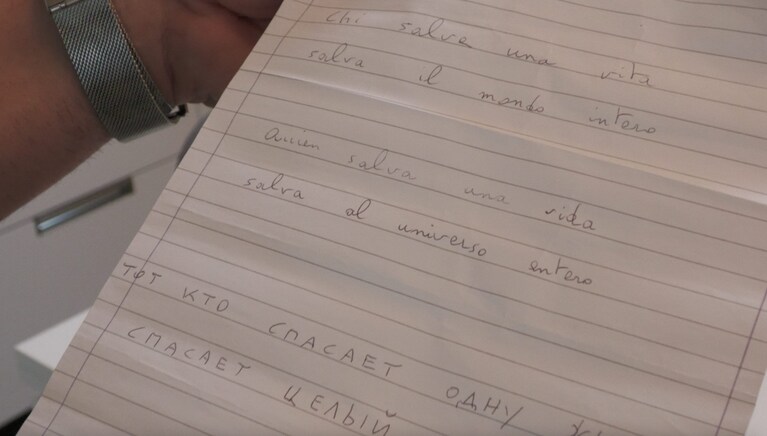 chi salva una vita
salva il mondo intero
quien salva una vida
salva al universo entero
ТОТ КТО СПАСАЕТ ОДНУ
СПАСАЕТ ЦЕЛЫЙ